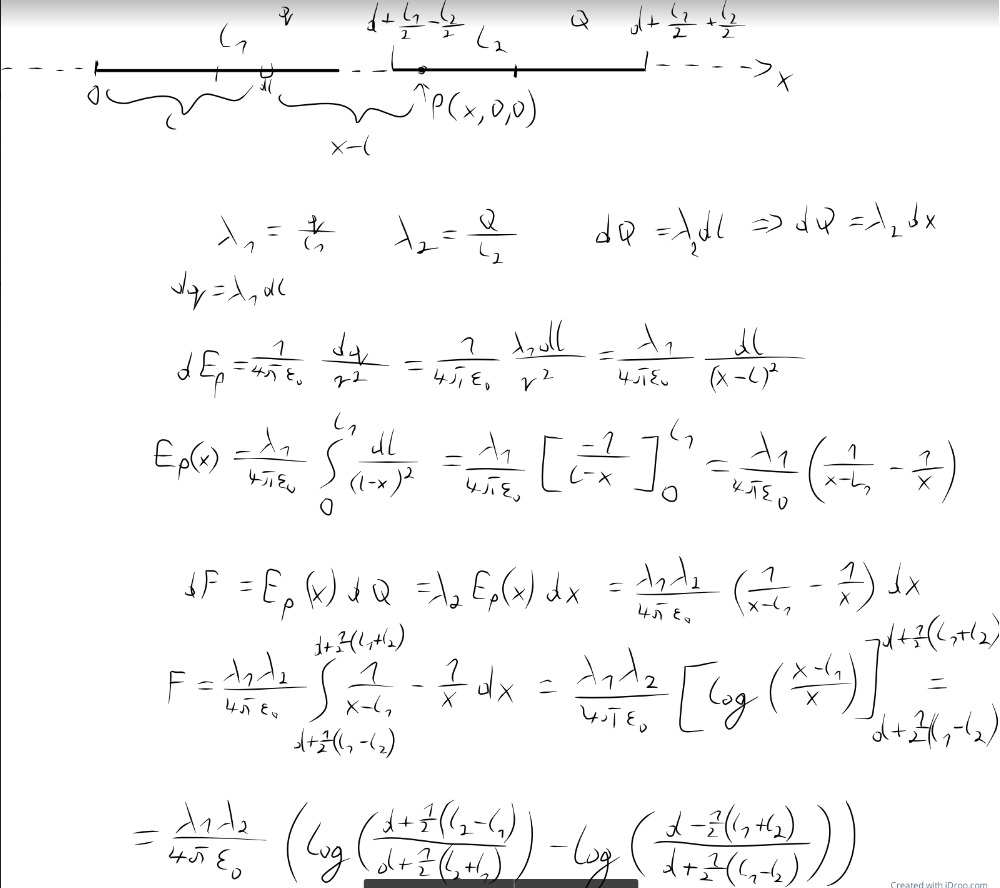 L₁ q d+L₁/2-L₂/2 L₂ Q d+L₁/2+L₂/2
0 dl x
l x-l P(x,0,0)
λ₁ = q/L₁ λ₂ = Q/L₂ dQ = λ₂dl => dQ = λ₂dx
dq = λ₁dl
dEₚ = 1/(4πε₀) dq/r² = 1/(4πε₀) λ₁dl/r² = λ₁/(4πε₀) dl/(x-l)²
Eₚ(x) = λ₁/(4πε₀) ∫₀^L₁ dl/(l-x)² = λ₁/(4πε₀) [-1/(l-x)]₀^L₁ = λ₁/(4πε₀) (1/(x-L₁) - 1/x)
dF = Eₚ(x) dQ = λ₂Eₚ(x) dx = λ₁λ₂/(4πε₀) (1/(x-L₁) - 1/x) dx
F = λ₁λ₂/(4πε₀) ∫_{d+1/2(L₁-L₂)}^{d+1/2(L₁+L₂)} 1/(x-L₁) - 1/x dx = λ₁λ₂/(4πε₀) [log((x-L₁)/x)]_{d+1/2(L₁-L₂)}^{d+1/2(L₁+L₂)} =
= λ₁λ₂/(4πε₀) (log((d+1/2(L₂-L₁))/(d+1/2(L₂+L₁))) - log((d-1/2(L₁+L₂))/(d+1/2(L₁-L₂))))
Created with iDroo.com